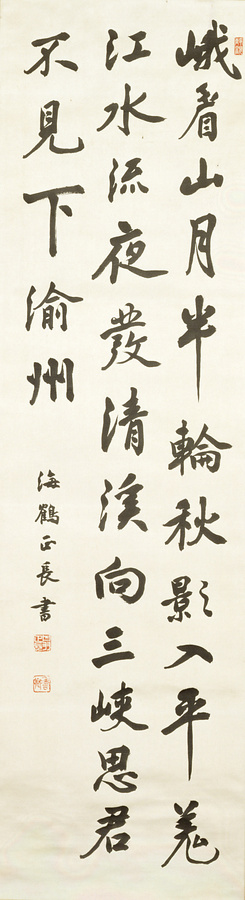 峨眉山月半輪秋影入平羌
江水流夜發清溪向三峽思君
不見下渝州
海鶴正長書